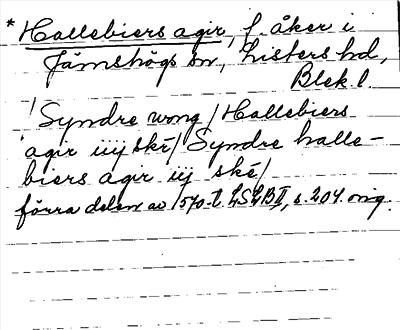 * Hallebiers agir, f. åker i
Jämshögs sn, Listers hd,
Blek. l.
/Syndre wong/Hallebiers
agir iiij ske/Syndre halle-
biers agir iij ske/
förra delen av 1570-t. LSLB II, s. 204 orig.